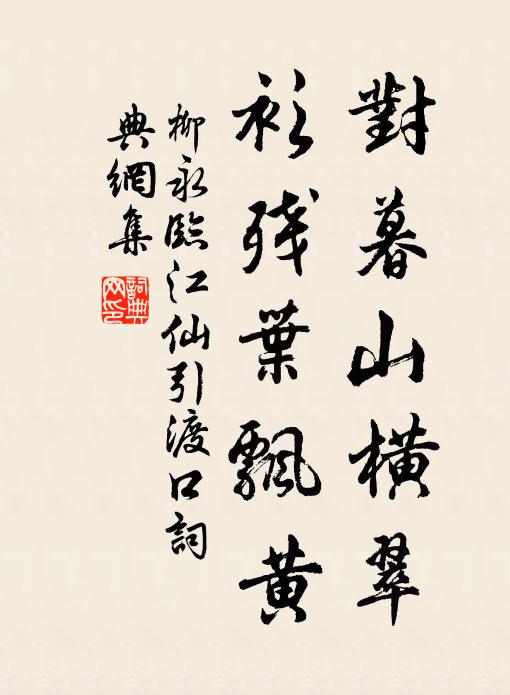 對暮山橫翠
衫殘葉飄黃
柳永臨江仙引渡口詞
典網集
詞典網印